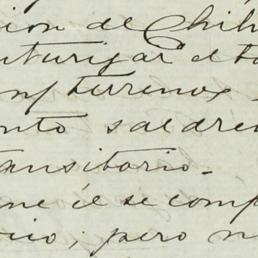 cion de Chih
nturizar el t
en/ terrenos
ento saldre
ansitorio.
ne él se comp
cio; pero n